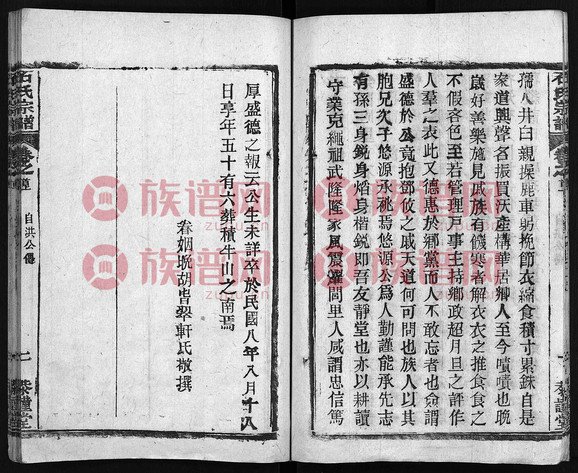 孺人井臼親操鹿車躬挽節衣縮食積寸累銖自是
家道興聲名振買沃產構華居鄉人至今嘖嘖也晚
歲好善樂施見戚族有饑寒者解衣衣之推食食之
不假吝色至若管理戶事主持鄉政超月旦之評作
人羣之表此又德惠於鄉黨而人不敢忘者也命謂
盛德於公竟抱鄧攸之戚天道何可問也族人以其
胞兄次子悠源承祧焉悠源公為人勤謹能承先志
有孫三身鋭身熖身楷鋭即吾友靜堂也亦以耕讀
守業克繩祖武隆隆家風震濯閭里人咸謂忠信篤
厚盛德之報云公生未詳卒於民國八年八月十八
日享年五十有六葬積牛山之南焉
眷姻晚胡皆翠軒氏敬撰
石氏宗譜
卷之
自洪公傳
二
石氏宗譜
卷之
族譜网
族譜网
族譜网
族譜网